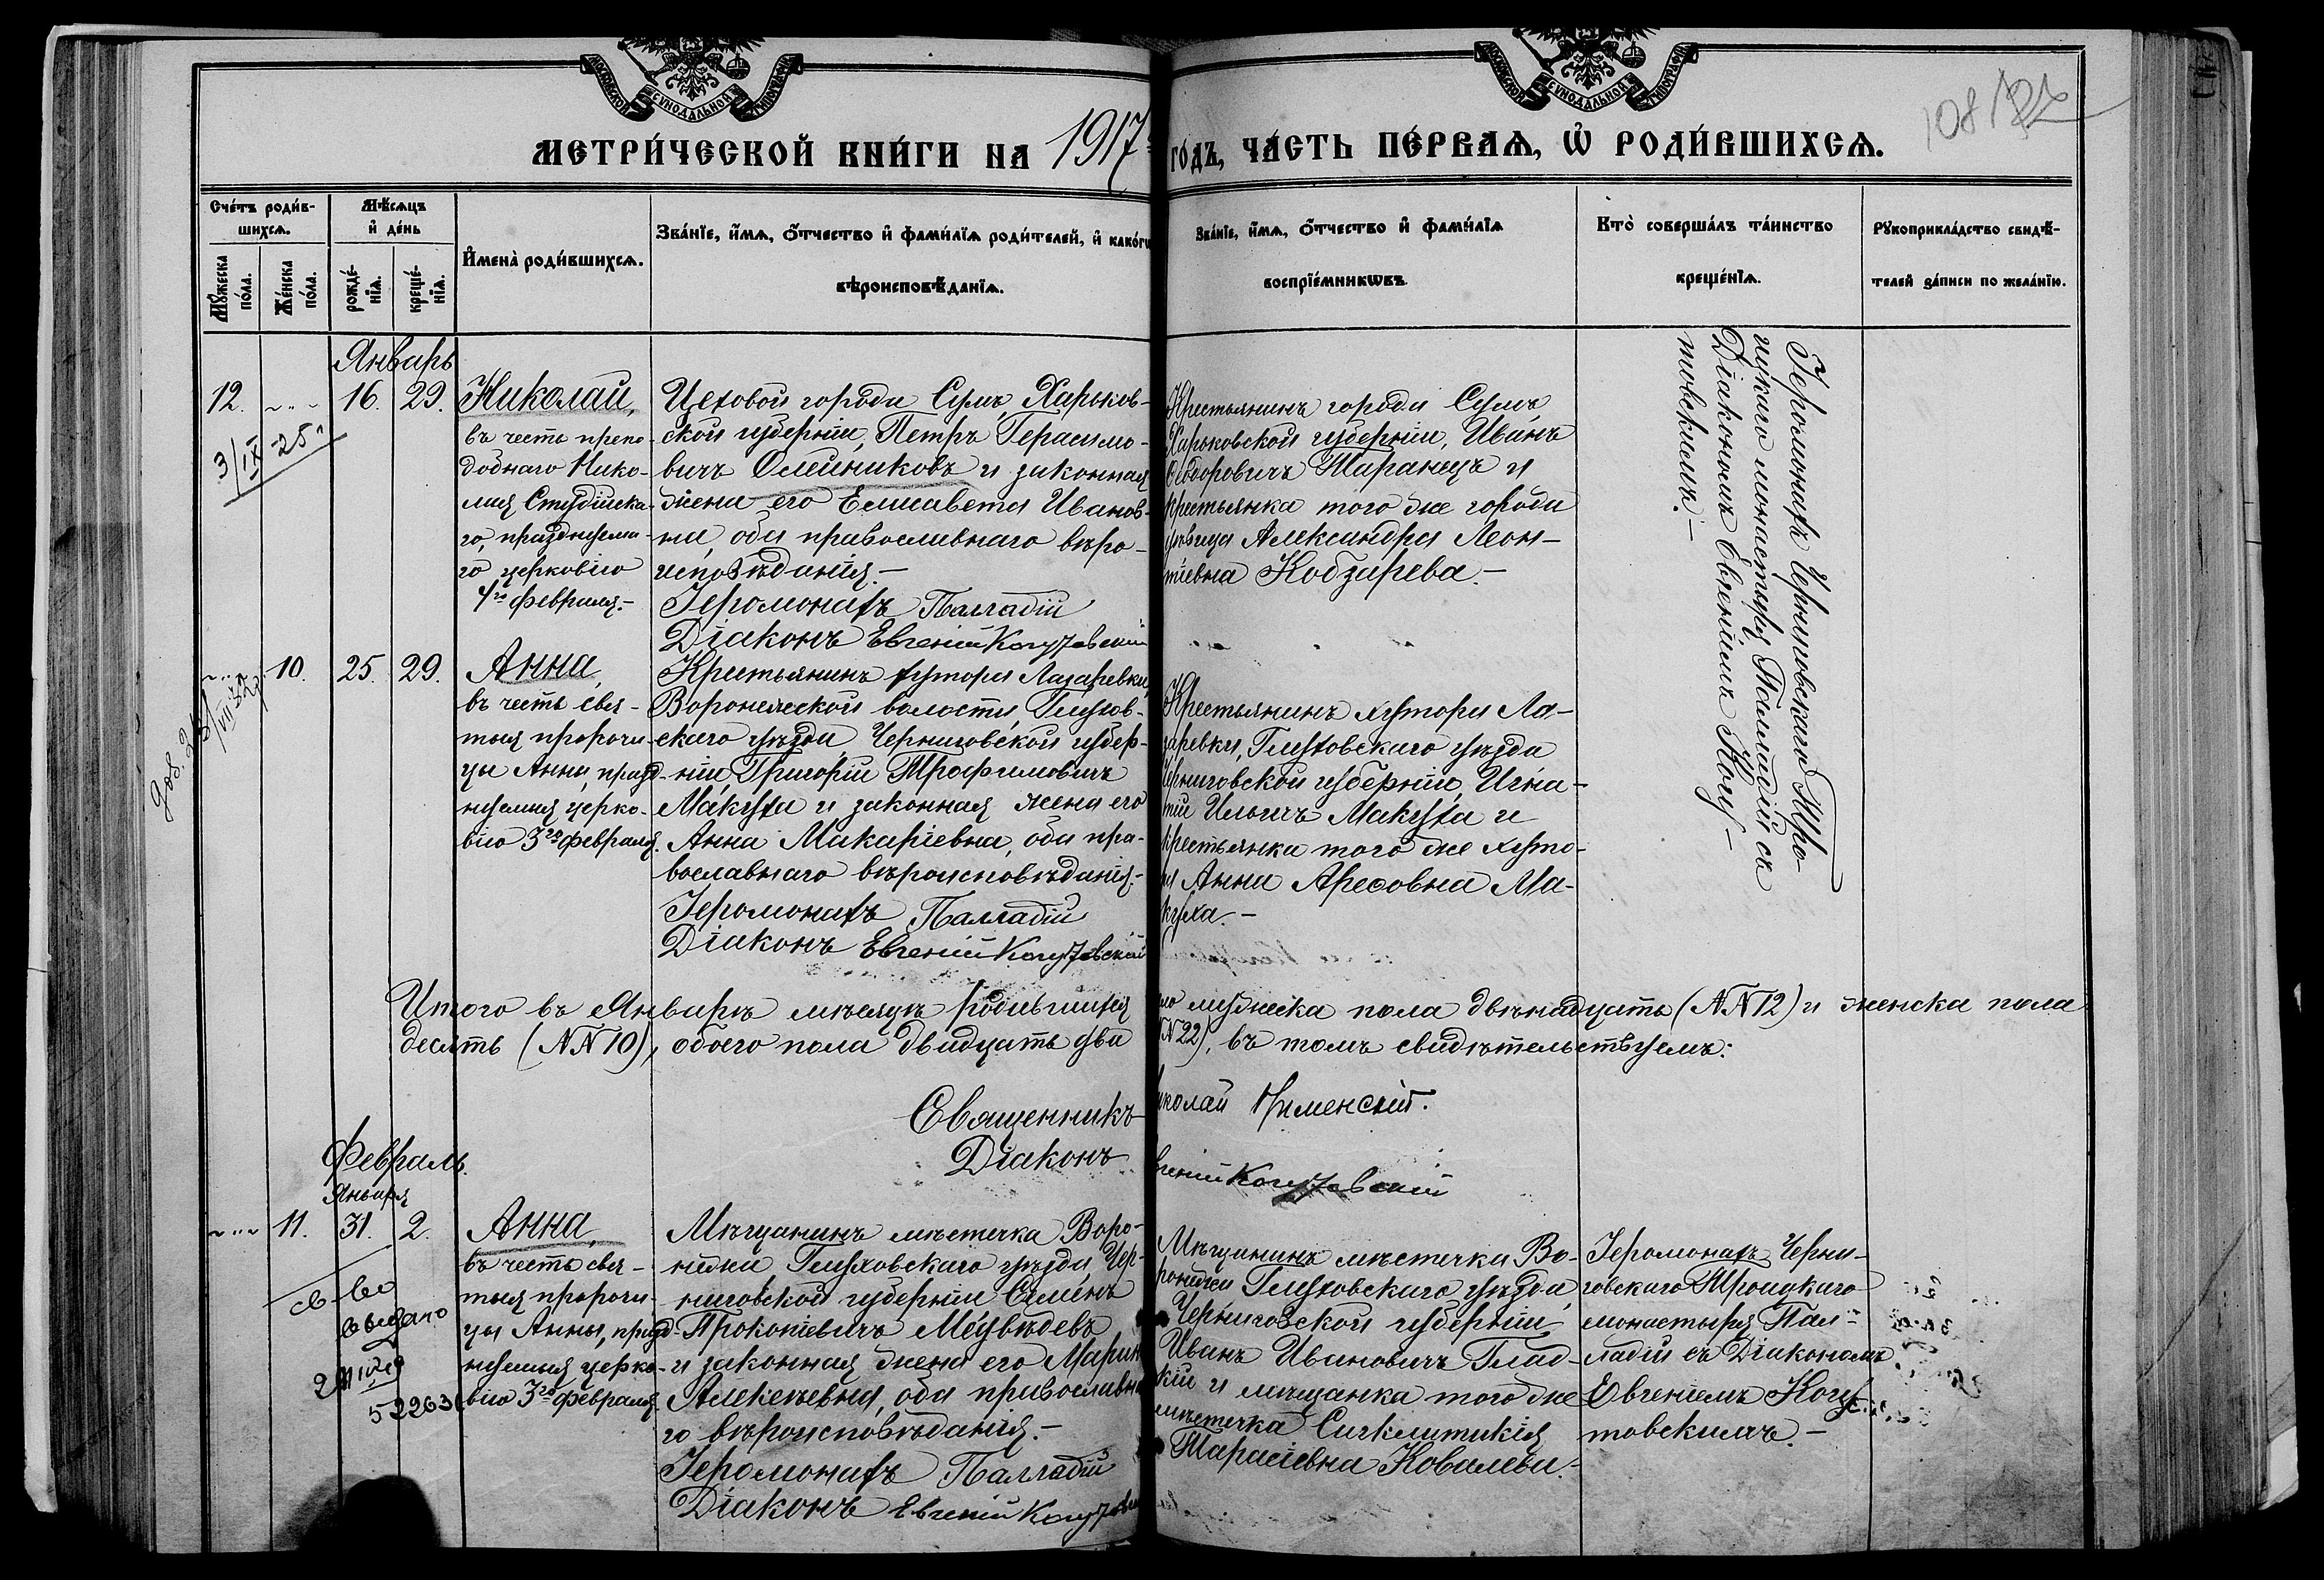 МОСКОВСКОЙ СѴНОДАЛЬНОЙ ТИПОГРАФІИ
МОСКОВСКОЙ СѴНОДАЛЬНОЙ ТИПОГРАФІИ
108
МЕТРИ́ЧЕСКОЙ КНИ́ГИ НА 1917 ГО́ДЪ, ЧА́СТЬ ПЕ́РВАѦ, Ѽ РОДИ́ВШИХСѦ.
Сче́тъ роди́в-
шихсѧ.
Мꙋ́жеска по́ла.
Же́нска по́ла.
Мѣ́сѧцъ
и҆ де́нь
рожде́-
нїѧ.
креще́-
нїѧ.
И҆мена̀ роди́вшихсѧ.
Зва́нїе, и҆́мѧ, ѻ҆́тчество и҆ фами́лїѧ роди́телей, и҆ како́гѡ
вѣроисповѣ́данїѧ.
Зва́нїе, и҆́мѧ, ѻ҆́тчество и҆ фами́лїѧ
воспрїе́мникѡвъ.
Кто̀ соверша́лъ та́инство
креще́нїѧ.
Рꙋкоприкла́дство свидѣ́-
телей за́писи по жела́нїю.
Январь
12. 16. 29.
3/IX-25 г
Николай,
въ честь препо-
добнаго Нико-
лая Студійска-
го, празднуема-
го церковію
4го февраля.-
Цеховой города Сумъ, Харьков-
ской губерніи, Петръ Герасимо-
вичъ Олейниковъ и законная
жена его Елисавета Иванов-
на, оба православнаго веро-
исповѣданія.-
Іеромонахъ Палладій
Діаконъ Евгеній Коцутовскій
Крестьянинъ города Сумъ
Харьковской губерніи, Иванъ
Ѳеодоровичъ Шаранецъ и
крестьянка того же города
дѣвица Александра Леон-
тіевна Кобзарева.-
Іеромонахъ Черниговскаго Тро-
ицкаго монастыря Палладій съ
Діакономъ Евгеніемъ Коцу-
товскимъ.-
10. 25. 29.
Анна,
въ честь свя-
тыя пророчи-
цы Анны, празд-
нуемыя церко-
вію 3го февраля.
Крестьянинъ хутора Лазаревки,
Воронежской волости, Глухов-
скаго уѣзда, Черниговской губер-
ніи, Григорій Трофимовичъ
Макуха и законная жена его
Анна Макаріевна, оба пра-
вославнаго вѣроисповѣданія.-
Іеромонахъ Палладій
Діаконъ Евгеній Коцутовскій
Крестьянинъ хутора Ла-
заревки, Глуховскаго уѣзда
Черниговской губерніи, Игна-
тій Ильичъ Макуха и
крестьянка того же хуто-
ра Анна Аресовна Ма-
куха.-
Итого въ Январѣ мѣсяцѣ родившихся мужеска пола двѣнадцать (NN 12) и женска пола
десять (NN 10), обоего пола двадцать два (NN 22), въ томъ свидѣтельствуемъ:
Священникъ Николай
Діаконъ Евгеній Коцутовскій
Февраль.
Января
11. 31. 2.
св-во
выдано
Анна,
въ честь свя-
тыя пророчи-
цы Анны, празд-
нуемыя церко-
вію 3го февраля.
Мѣщанинъ мѣстечка Воро-
нежа Глуховскаго уѣзда, Чер-
ниговской губерніи Сименъ
Прокопіевичъ Медвѣдевъ
и законная жена его Марина
Алексѣевна, оба православна-
го вѣроисповѣданія.-
Іеромонахъ Палладій
Діаконъ Евгеній Коцутовскій
Мѣщанинъ мѣстечка Во-
ронежа Глуховскаго уѣзда,
Черниговской губерніи,
Иванъ Ивановичъ Глад-
кій и мѣщанка того же
мѣстечка Сигклитикія
Тарасіевна Ковалева.-
Іеромонахъ Черни-
говскаго Троицкаго
монастыря Пал-
ладій съ Діакономъ
Евгеніемъ Коцу-
товскимъ.-